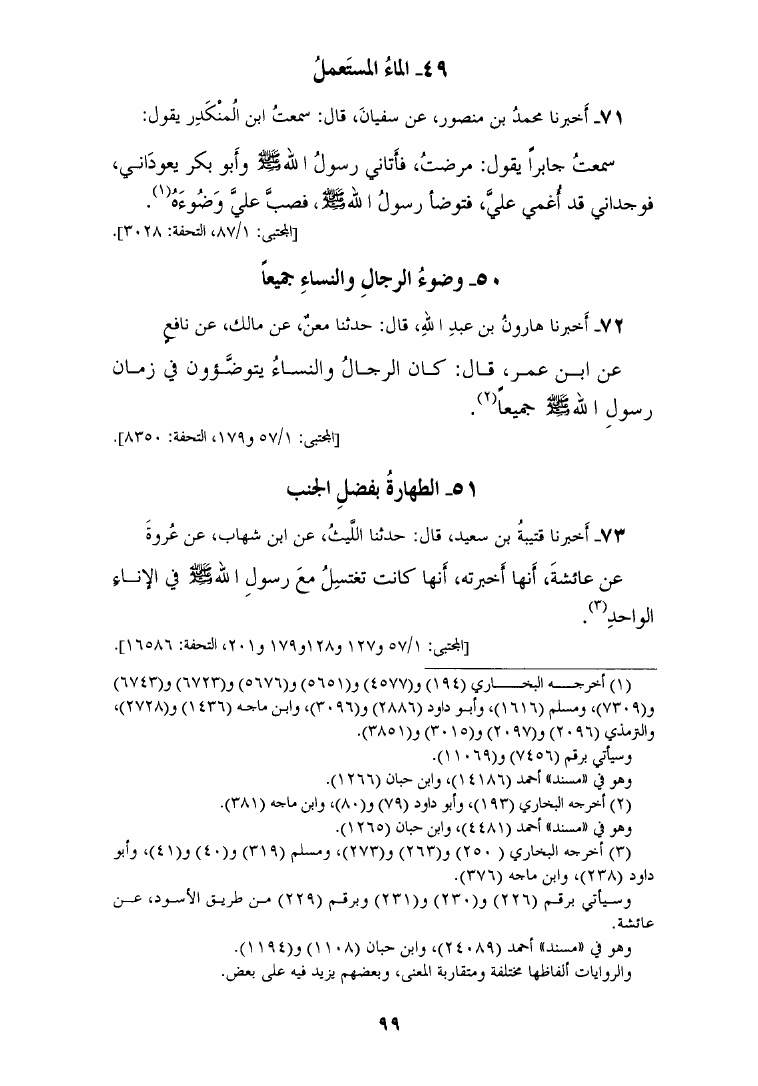 ٤٩ـ الماءُ المستَعملُ
٧١ـ أخبرنا محمدُ بن منصور، عن سفيانَ، قال: سمعتُ ابن المُنْكَدِر يقول:
سمعتُ جابراً يقول: مرضتُ، فأَتاني رسولُ اللهِ ﷺ وأَبو بكر يعودَاني،
فوجداني قد أُغمي عليَّ، فتوضأ رسولُ اللهِ ﷺ، فصبَّ عليَّ وَضُوءَهُ(١).
[المجتبى: ٨٧/١، التحفة: ٣٠٢٨].
٥٠ـ وضوءُ الرجالِ والنساءِ جميعاً
٧٢ـ أخبرنا هارونُ بن عبدِ اللهِ، قال: حدثنا معنٌ، عن مالك، عن نافعٍ
عن ابن عمر، قال: كان الرجالُ والنساءُ يتوضَّؤون في زمان
رسولِ اللهِ ﷺ جميعاً(٢).
[المجتبى: ٥٧/١ و١٧٩، التحفة: ٨٣٥٠].
٥١ـ الطهارةُ بفضلِ الجنب
٧٣ـ أخبرنا قتيبةُ بن سعيد، قال: حدثنا اللَّيثُ، عن ابن شهاب، عن عُروةَ
عن عائشةَ، أنها أخبرته، أنها كانت تغتسِلُ معَ رسولِ اللهِ ﷺ في الإناءِ
الواحدِ(٣).
[المجتبى: ٥٧/١ و١٢٧ و١٢٨و١٧٩ و٢٠١، التحفة: ١٦٥٨٦].
(١) أخرجه البخاري (١٩٤) و(٤٥٧٧) و(٥٦٥١) و(٥٦٧٦) و(٦٧٢٣) و(٦٧٤٣)
و(٧٣٠٩)، ومسلم (١٦١٦)، وأبو داود (٢٨٨٦) و(٣٠٩٦)، وابن ماجه (١٤٣٦) و(٢٧٢٨)،
والترمذي (٢٠٩٦) و(٢٠٩٧) و(٣٠١٥) و(٣٨٥١).
وسيأتي برقم (٧٤٥٦) و(١١٠٦٩).
وهو في «مسند» أحمد (١٤١٨٦)، وابن حبان (١٢٦٦).
(٢) أخرجه البخاري (١٩٣)، وأبو داود (٧٩) و(٨٠)، وابن ماجه (٣٨١).
وهو في «مسند» أحمد (٤٤٨١)، وابن حبان (١٢٦٥).
(٣) أخرجه البخاري ( ٢٥٠) و(٢٦٣) و(٢٧٣)، ومسلم (٣١٩) و(٤٠) و(٤١)، وأبو
داود (٢٣٨)، وابن ماجه (٣٧٦).
وسيأتي برقم (٢٢٦) و(٢٣٠) و(٢٣١) وبرقم (٢٢٩) من طريق الأسود، عن
عائشة.
وهو في «مسند» أحمد (٢٤٠٨٩)، وابن حبان (١١٠٨) و(١١٩٤).
والروايات ألفاظها مختلفة ومتقاربة المعنى، وبعضهم يزيد فيه على بعض.
٩٩